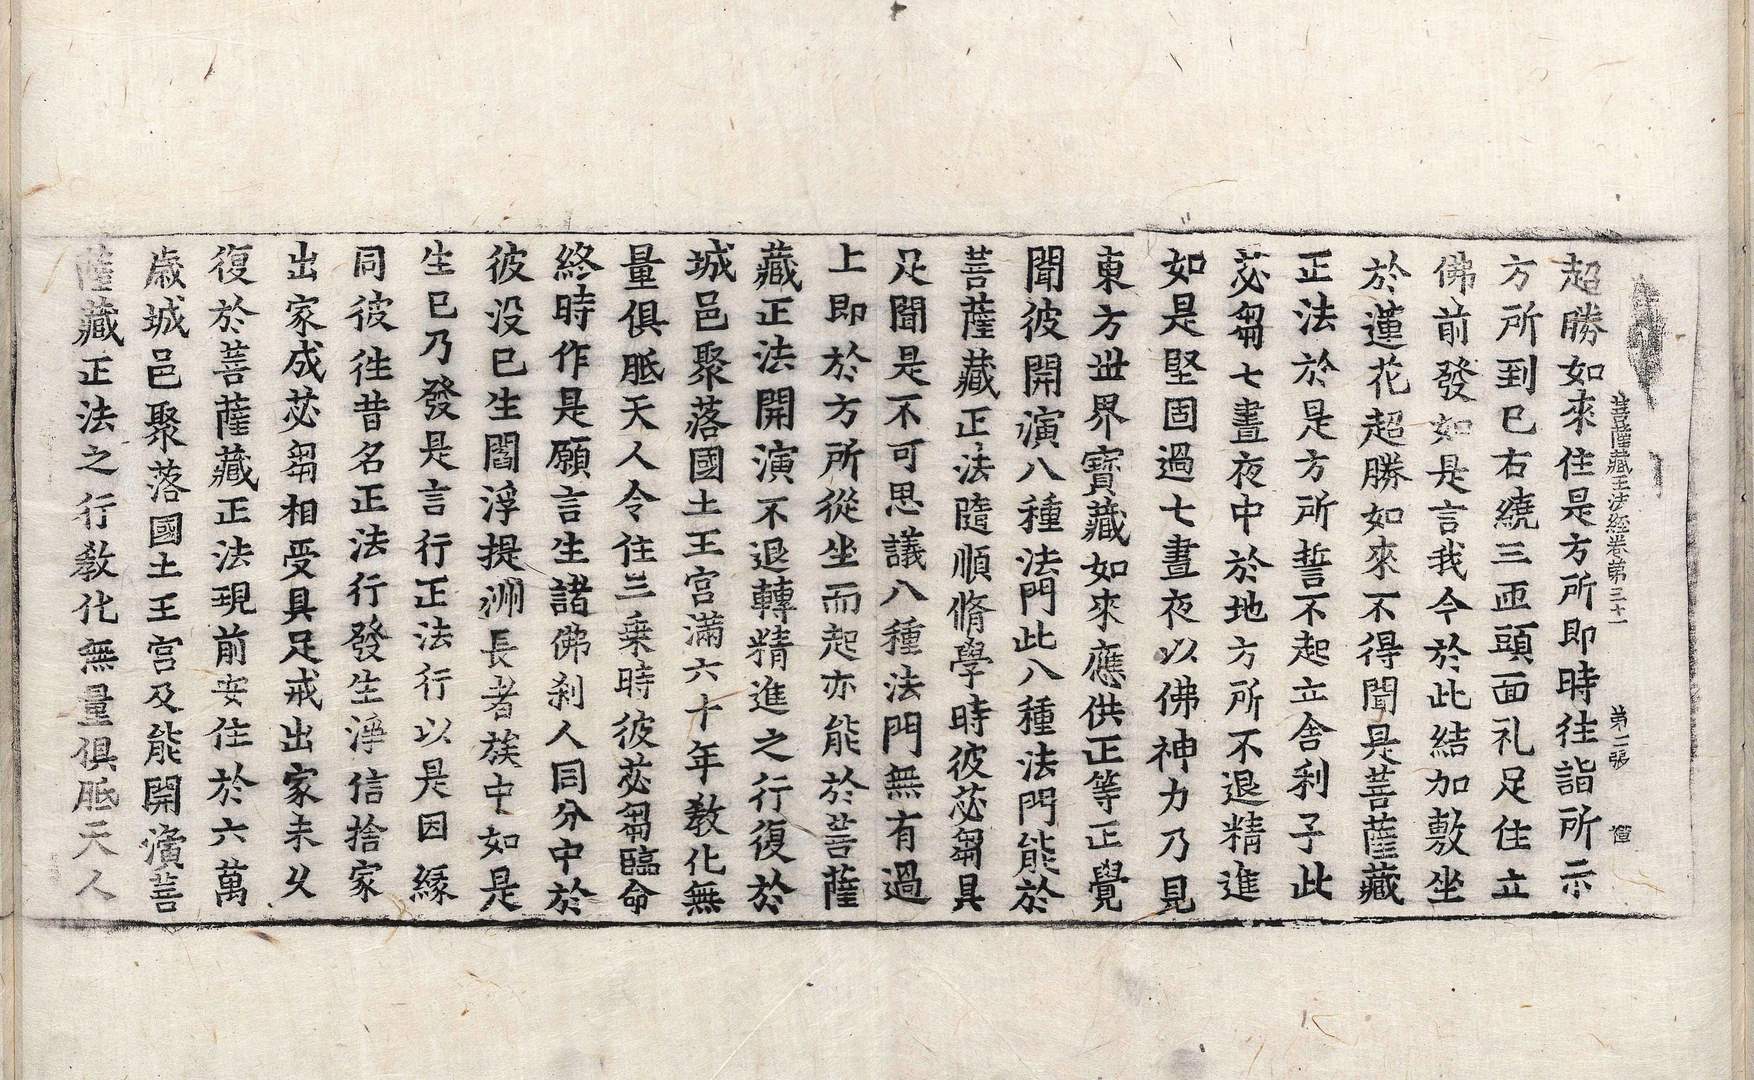 菩薩藏正法經卷第三十一 第二張
超勝如來住是方所即時往詣所示
方所到已右繞三帀頭面礼足住立
佛前發如是言我今於此結加敷坐
於蓮花超勝如來不得聞是菩薩藏
正法於是方所誓不起立舍利子此
苾芻七晝夜中於地方所不退精進
如是堅固過七晝夜以佛神力乃見
東方世界寶藏如來應供正等正覺
聞彼開演八種法門此八種法門能於
菩薩藏正法隨順脩學時彼苾芻具
足聞是不可思議八種法門無有過
上即於方所從坐而起亦能於菩薩
藏正法開演不退轉精進之行復於
城邑聚落國土王宮滿六十年教化無
量俱胝天人令住三乘時彼苾芻臨命
終時作是願言生諸佛刹人同分中於
彼没已生閻浮提洲長者族中如是
生已乃發是言行正法行以是因緣
同彼往昔名正法行發生淨信捨家
出家成苾芻相受具足戒出家未久
復於菩薩藏正法現前安住於六萬
歲城邑聚落國土王宮及能開演菩
薩藏正法之行教化無量俱胝天人